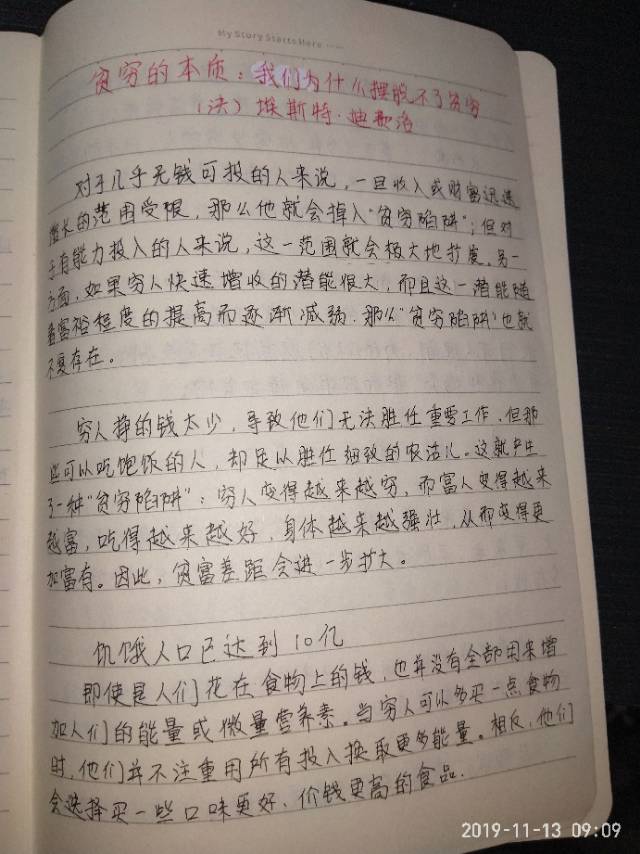 My Story Starts Here
贫穷的本质：我们为什么摆脱不了贫穷
（法）埃斯特·迪弗洛
对于几乎无钱可投的人来说，一旦收入或财富迅速
增长的范围受限，那么他就会掉入“贫穷陷阱”；但对
于有能力投入的人来说，这一范围就会极大地扩展。另一
方面，如果穷人快速增收的潜能很大，而且这一潜能随
着富裕程度的提高而逐渐减弱，那么“贫穷陷阱”也就
不复存在。
穷人挣的钱太少，导致他们无法胜任重要工作，但那
些可以吃饱饭的人，却足以胜任细致的农活儿。这就产生
了一种“贫穷陷阱”：穷人变得越来越穷，而富人变得越来
越富，吃得越来越好，身体越来越强壮，从而变得更
加富有。因此，贫富差距会进一步扩大。
饥饿人口已达到10亿
即使是人们花在食物上的钱，也并没有全部用来增
加人们的能量或微量营养素。当穷人可以多买一点食物
时，他们并不注重用所有投入换取更多能量。相反，他们
会选择买一些口味更好、价钱更高的食品.
2019-11-13 09:09